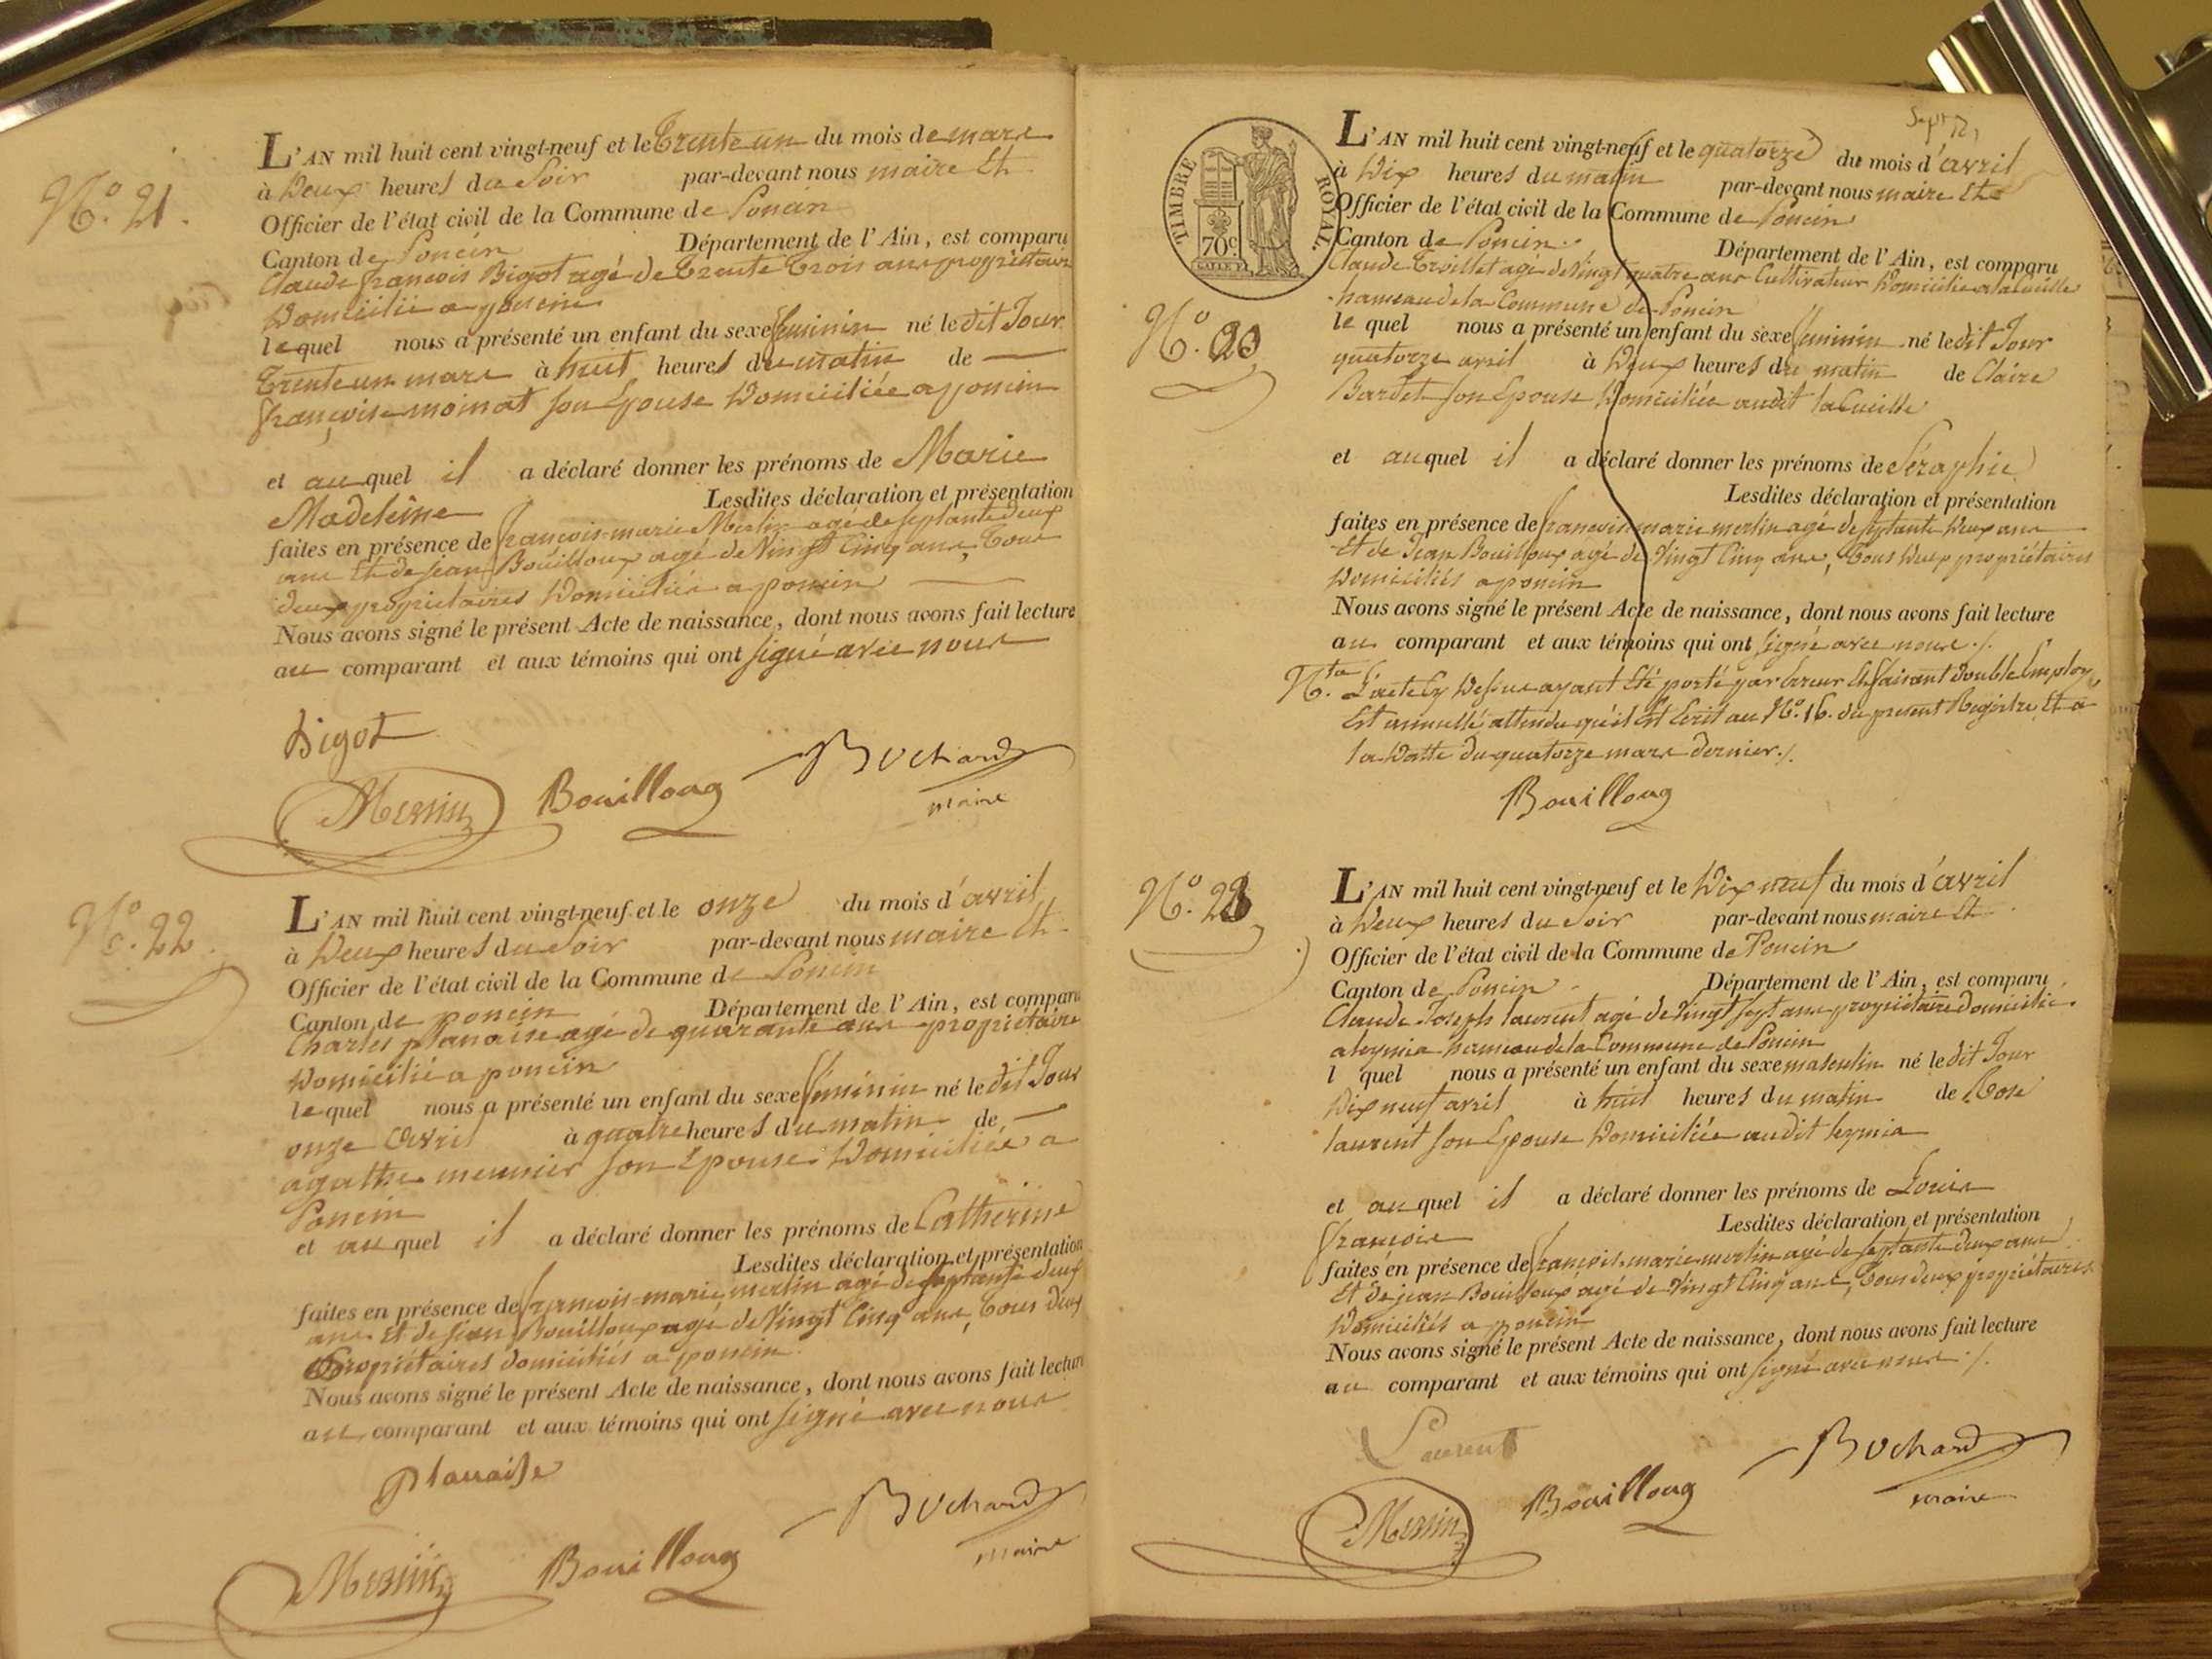 N.° 21.
L'AN mil huit cent vingt-neuf et le trente un du mois de mars
à Deux heures du Soir par-devant nous maire Et
Officier de l'état civil de la Commune de Poncin
Canton de Poncin Département de l'Ain, est comparu
Claude françois Bigot agé de trente trois ans propriétaire
Domicilié a poncin
lequel nous a présenté un enfant du sexe féminin né le dit Jour
trente un mars à huit heures du matin de
françoise moinat son Epouse Domiciliée a poncin
et au quel il a déclaré donner les prénoms de Marie
Madeleine Lesdites déclaration et présentation
faites en présence de françois-marie Merlin agé de septante deux
ans Et de jean Bouilloux agé de Vingt Cinq ans, tous
deux propriétaires Domiciliés a poncin
Nous avons signé le présent Acte de naissance, dont nous avons fait lecture
au comparant et aux témoins qui ont signé avec nous
Bigot
Merlin Bouilloux Bochard
maire
N.° 22
L'AN mil huit cent vingt-neuf et le onze du mois d'avril
à Deux heures du Soir par-devant nous maire Et
Officier de l'état civil de la Commune de Poncin
Canton de poncin Département de l'Ain, est comparu
Charles planaise agé de quarante ans propriétaire
Domicilié a poncin
lequel nous a présenté un enfant du sexe féminin né le dit Jour
onze avril à quatre heures du matin de
agathe meunier son Epouse Domiciliée a
Poncin
et au quel il a déclaré donner les prénoms de Catherine
Lesdites déclaration et présentation
faites en présence de françois-marie merlin agé de septante deux
ans Et de jean Bouilloux agé de Vingt Cinq ans, tous deux
propriétaires domiciliés a poncin
Nous avons signé le présent Acte de naissance, dont nous avons fait lecture
au comparant et aux témoins qui ont signé avec nous
Planaise
Merlin Bouilloux Bochard
maire
TIMBRE ROYAL
70c.
L'AN mil huit cent vingt-neuf et le quatorze du mois d'avril
à Dix heures du matin par-devant nous maire Et
Officier de l'état civil de la Commune de Poncin
Canton de Poncin Département de l'Ain, est comparu
Claude trvillet agé de Vingt quatre ans Cultivateur Domicilié a la Cueille
hameau de la Commune de Poncin
N.° 23
le quel nous a présenté un enfant du sexe féminin né le dit Jour
quatorze avril à Deux heures du matin de Claire
Bardet son Epouse Domiciliée audit la Cueille
et au quel il a déclaré donner les prénoms de Séraphie
Lesdites déclaration et présentation
faites en présence de françois-marie merlin agé de septante Deux ans
Et de Jean Bouilloux agé de Vingt Cinq ans, tous Deux propriétaires
Domiciliés a poncin
Nous avons signé le présent Acte de naissance, dont nous avons fait lecture
au comparant et aux témoins qui ont signé avec nous ./.
N.ta L'acte Cy Dessus ayant Eté porté par Erreur Et faisant double Employ,
Est annullé attendu qu'il Est Ecrit au N.° 16. du present Registre Et a
la Datte du quatorze mars dernier ./.
Bouilloux
N.° 23
L'AN mil huit cent vingt-neuf et le Dix neuf du mois d'avril
à Deux heures du Soir par-devant nous maire Et
Officier de l'état civil de la Commune de Poncin
Canton de Poncin Département de l'Ain, est comparu
Claude-Joseph laurent agé de Vingt sept ans propriétaire Domicilié
a leymia hameau de la Commune de Poncin
l quel nous a présenté un enfant du sexe masculin né le dit Jour
Dix neuf avril à huit heures du matin de Rose
laurent son Epouse Domiciliée audit leymia
et au quel il a déclaré donner les prénoms de Louis
françois Lesdites déclaration et présentation
faites en présence de françois-marie merlin agé de septante deux ans
Et de jean Bouilloux agé de Vingt Cinq ans, tous deux propriétaires
Domiciliés a poncin
Nous avons signé le présent Acte de naissance, dont nous avons fait lecture
au comparant et aux témoins qui ont signé avec nous ./.
Laurent
Merlin Bouilloux Bochard
maire